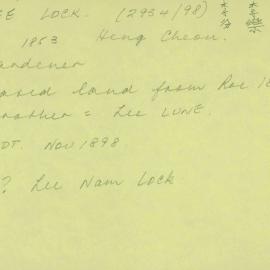 EE LOCK. (2934/98)
1853 Heng Cheon.
ardener
ased land from Roe 18
rother = Lee LUNE.
DT. NOV 1898
? Lee Nam LOCK